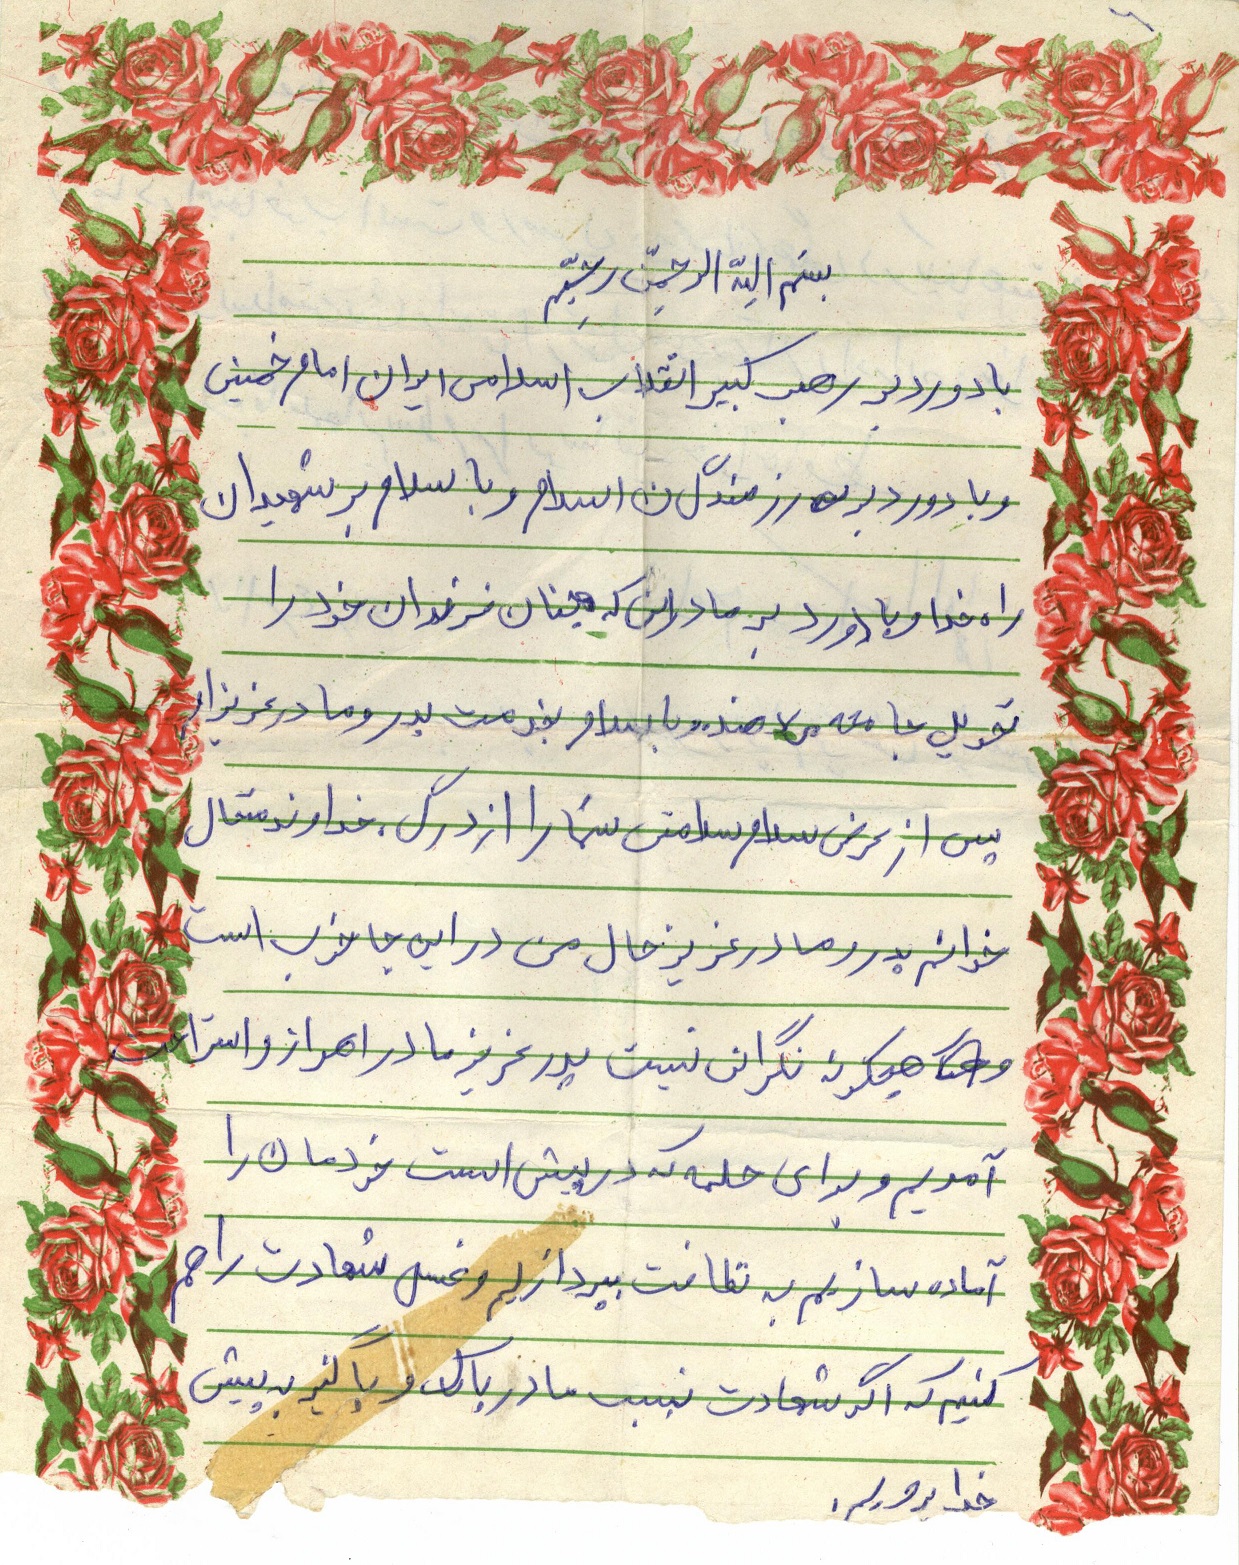 بسم الله الرحمن رحیم
با دورد بر رهبر کبیر انقلاب اسلامی ایران امام خمینی
و با دورد بر رزمندگان اسلام و با سلام بر شهیدان
راه خدا و با دورد بر مادرانی که چنان فرزندان خود را
تحویل جامعه و با سلام بخدمت پدر و مادر عزیزم
پس از عرض سلام سلامتی شما را از درگاه خداوند متعال
خوانم پدر و مادر عزیز حال من در این جا خوب است
و هیچگونه نگرانی نیست پدر عزیز ما در اهواز و استراحت
آمدیم و برای حمله که در پیش است خودمان را
آماده سازیم به نظافت بپردازیم و غسل شهادت را هم
کنیم که اگر شهادت نسیب ما در پاک و پاکیز به پیش
خدا برویم.